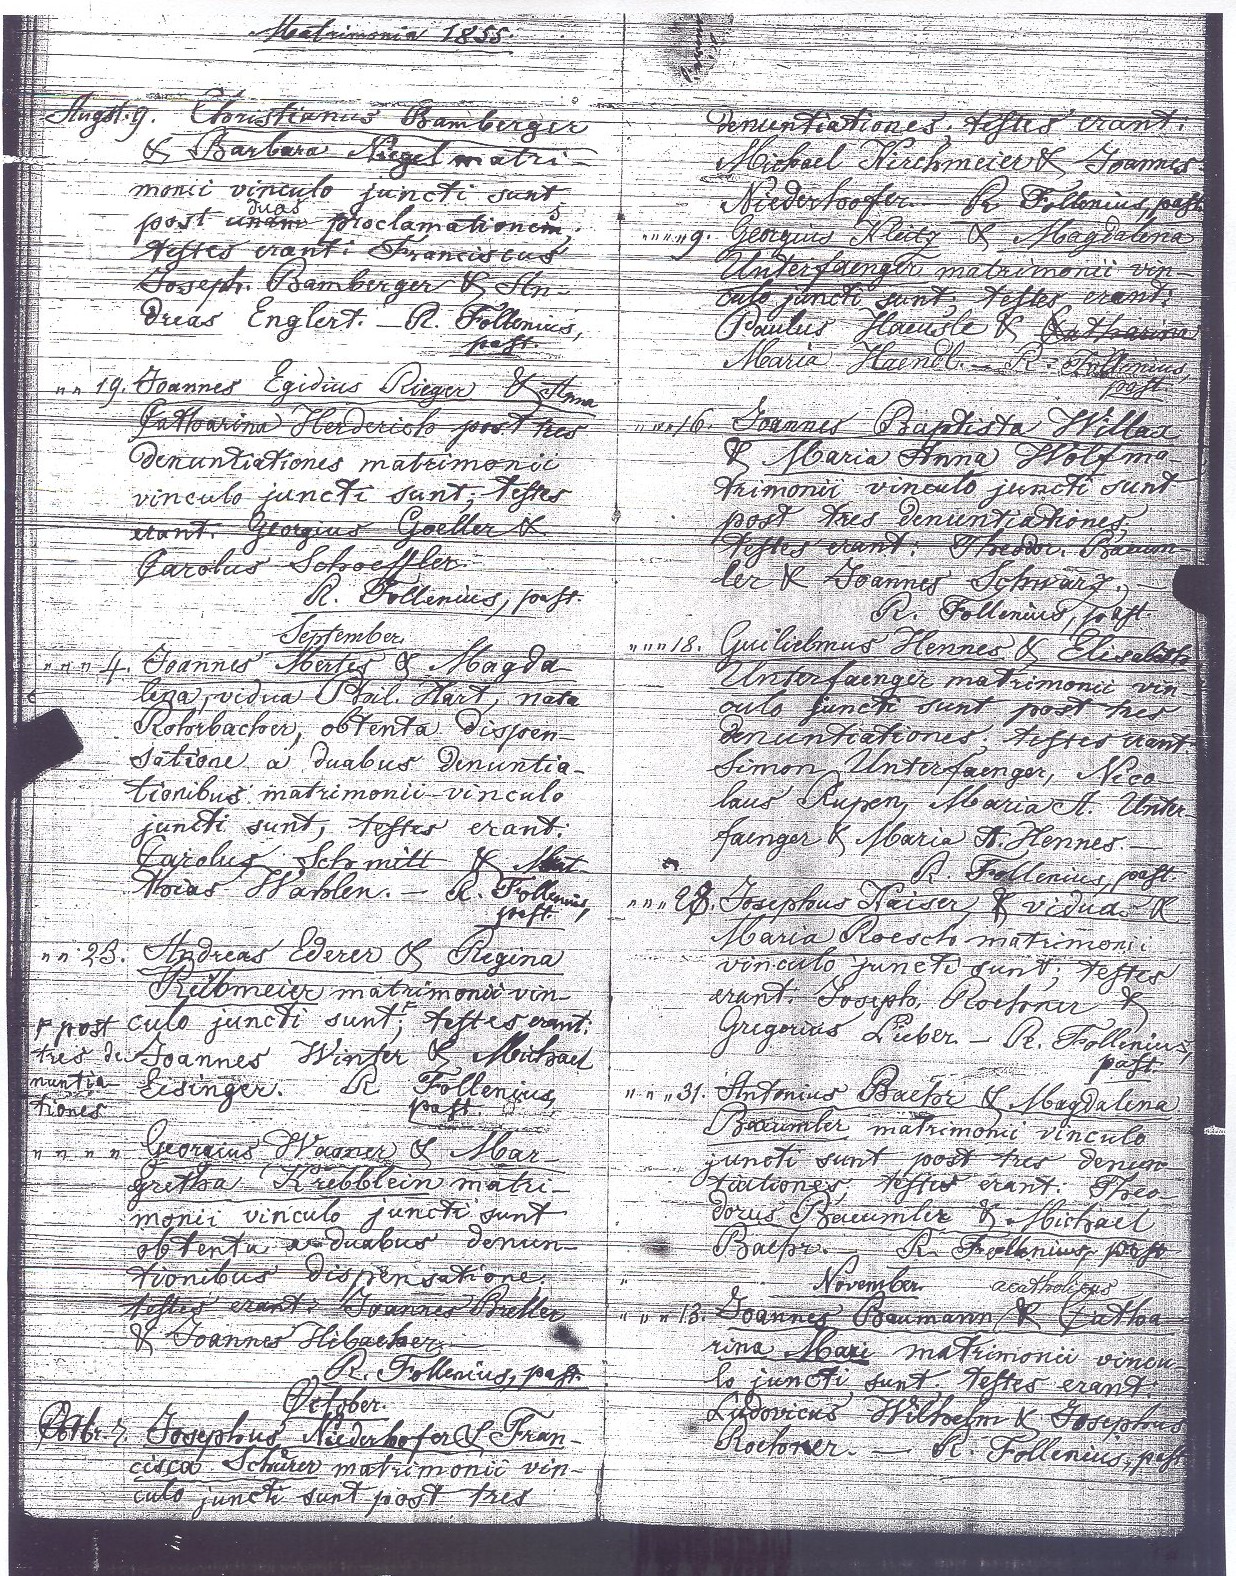 Matrimonia 1855.
Augst. 9. Christianus Bamberger
& Barbara Niegel matri-
monii vinculo juncti sunt
duas
post unam proclamationem,
testes erant: Franciscus
Joseph. Bamberger & An-
dreas Englert. — R. Follenius,
past.
" " 19. Joannes Egidius Rieger & Anna
Catharina Herderich post tres
denuntiationes matrimonii
vinculo juncti sunt, testes
erant. Georgius Goeller &
Carolus Schoeffler.
R. Follenius, past.
September.
" " " 4. Joannes Mertes & Magda
lena, vidua Phil. Hart, nata
Rohrbacher, obtenta dispen-
satione a duabus denuntia-
tionibus matrimonii vinculo
juncti sunt, testes erant:
Carolus Schmitt & Mat-
thias Wahlen. — R. Follenius,
past.
" " 23. Andreas Ederer & Regina
Reibmeier matrimonii vin-
culo juncti sunt, testes erant:
Joannes Winter & Michael
Eisinger. R Follenius,
past.
post
tres de
nuntia-
tiones
" " " " Georgius Wagner & Mar-
gretha Krebblein matri-
monii vinculo juncti sunt
obtenta a duabus denun-
tionibus dispensatione.
testes erant: Joannes Breller
& Joannes Hibacher.
R. Follenius, past.
October.
Octbr. 7. Josephus Niederhofer & Fran-
cisca Schürer matrimonii vin-
culo juncti sunt post tres
denuntiationes, testes erant:
Michael Kirchmeier & Joannes
Niederhoefer. R. Follenius, past.
" " " " 9. Georgius Klutz & Magdalena
Unterfaenger matrimonii vin-
culo juncti sunt, testes erant:
Paulus Haeusle & Catharina
Maria Haendl. — R. Follenius,
past
" " " 16. Joannes Baptista Willax
& Maria Anna Wolf ma
trimonii vinculo juncti sunt
post tres denuntiationes,
testes erant: Theodor. Baeum-
ler & Joannes Schwarz. —
R. Follenius, past.
" " " 18. Guilielmus Hennes & Elisabeth
Unterfaenger matrimonii vin-
culo juncti sunt post tres
denuntiationes, testes erant
Simon Unterfaenger, Nico-
laus Rupen, Maria A. Unter-
faenger & Maria A. Hennes. —
R. Follenius, past.
" " " 28. Josephus Kaiser & vidua R
Maria Roesch matrimonii
vinculo juncti sunt; testes
erant. Joseph. Roehner &
Gregorius Lieber. — R. Follenius,
past.
" " " 31. Antonius Baehr & Magdalena
Baeumler matrimonii vinculo
juncti sunt post tres denun
tiationes, testes erant: Theo
dorus Baeumler & Michael
Baehr. R. Follenius, past.
November. acatholicus
" " " 13. Joannes Baumann & Catha-
rina Mari matrimonii vincu-
lo juncti sunt, testes erant:
Ludovicus Wilhelm & Josephus
Roehner. — R. Follenius, past.